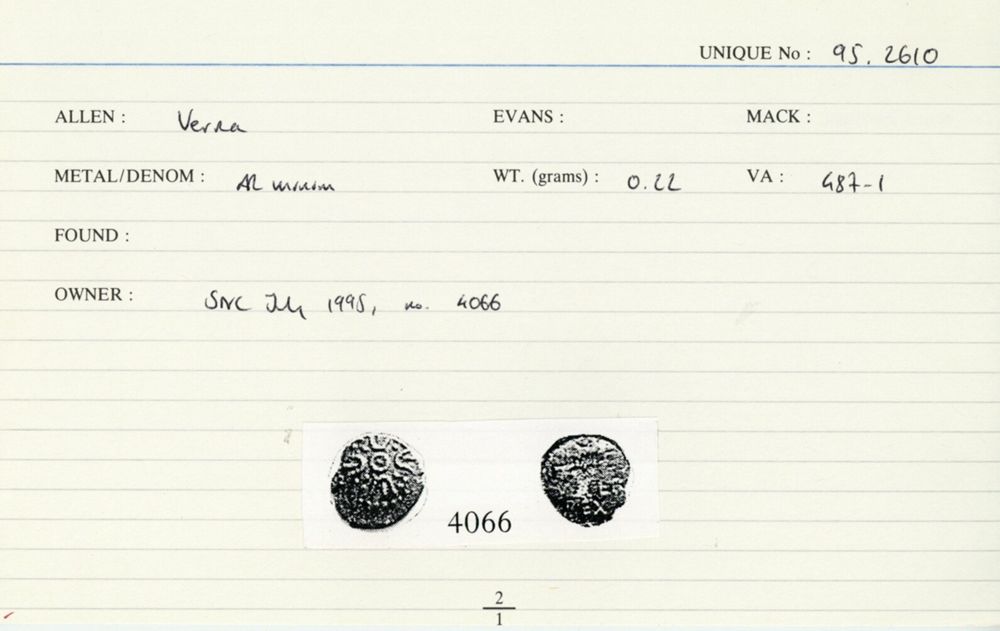 UNIQUE No : 95. 2610
ALLEN : Verica EVANS : MACK :
METAL/DENOM : AR minim WT. (grams) : 0.22 VA : 487-1
FOUND :
OWNER : SNC July 1995, no. 4066
4066
REX
2
1